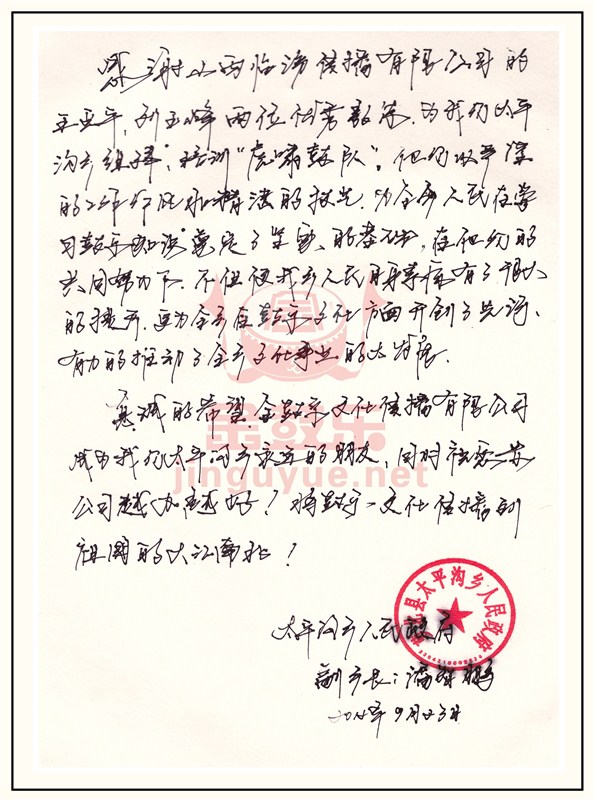 感谢山西临汾传播有限公司的
王亚平,刘玉峰两位优秀教练,为我们太平
沟乡组建、培训“虎啸鼓队”。他们以严谨
的工作作风和精湛的技艺,为全乡人民在学
习鼓乐知识奠定了坚实的基础,在他们的
共同努力下,不但使我乡人民身体素质有了很大
的提升,更为全乡在鼓乐文化方面开创了先河、
有力的推动了全乡文化事业的大发展。
真诚的希望金鼓乐文化传播有限公司
成为我们太平沟乡永远的朋友,同时祝贵
公司越办越好!将鼓乐文化传播到
祖国的大江南北!
金鼓乐
jinguyue.net
县太平沟乡人民政府
太平沟乡人民政府
副乡长:潘
9月23日